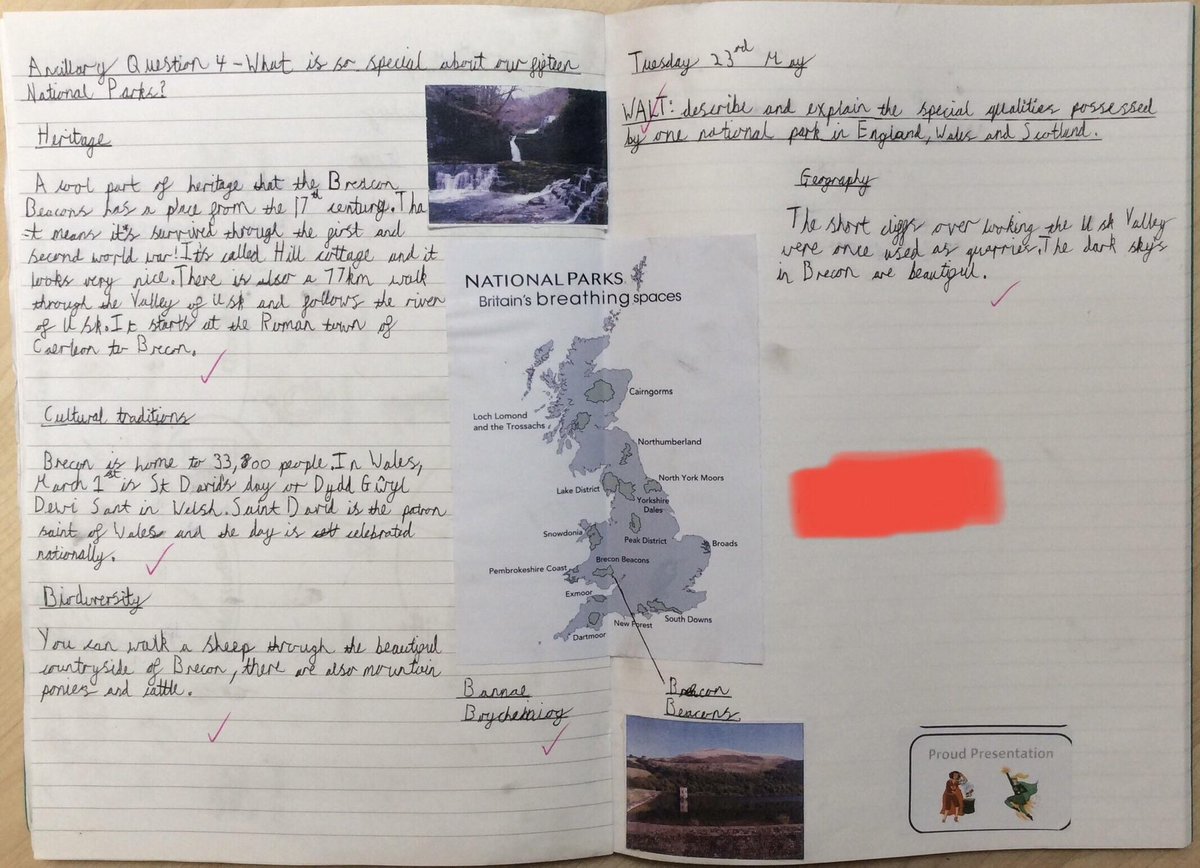 Ancillary Question 4 - What is so special about our fifteen
National Parks?
Heritage
A cool part of heritage that the Brescon
Beacons has a place from the 17th century. Tha
t means it's survived through the first and
second world war! It's called Hill cottage and it
looks very nice. There is also a 77km walk
through the Valley of Usk and follows the river
of Usk. It starts at the Roman town of
Caerleon to Brecon.
Cultural traditions
Brecon is home to 33,800 people. In Wales,
March 1st is St David's day or Dydd Gŵyl
Dewi Sant in Welsh. Saint David is the patron
saint of Wales and the day is celebrated
nationally.
Biodiversity
You can walk a sheep through the beautiful
countryside of Brecon, there are also mountain
ponies and cattle.
NATIONAL PARKS
Britain's breathing spaces
Cairngorms
Loch Lomond
and the Trossachs
Northumberland
Lake District
North York Moors
Yorkshire
Dales
Snowdonia
Peak District
Broads
Brecon Beacons
Pembrokeshire Coast
Exmoor
New Forest
South Downs
Dartmoor
Bannae
Brycheiniog
Brecon
Beacons
Tuesday 23rd May
WALT: describe and explain the special qualities possessed
by one national park in England, Wales and Scotland.
Geography
The short cliffs over looking the Usk Valley
were once used as quarries. The dark sky's
in Brecon are beautiful.
Proud Presentation